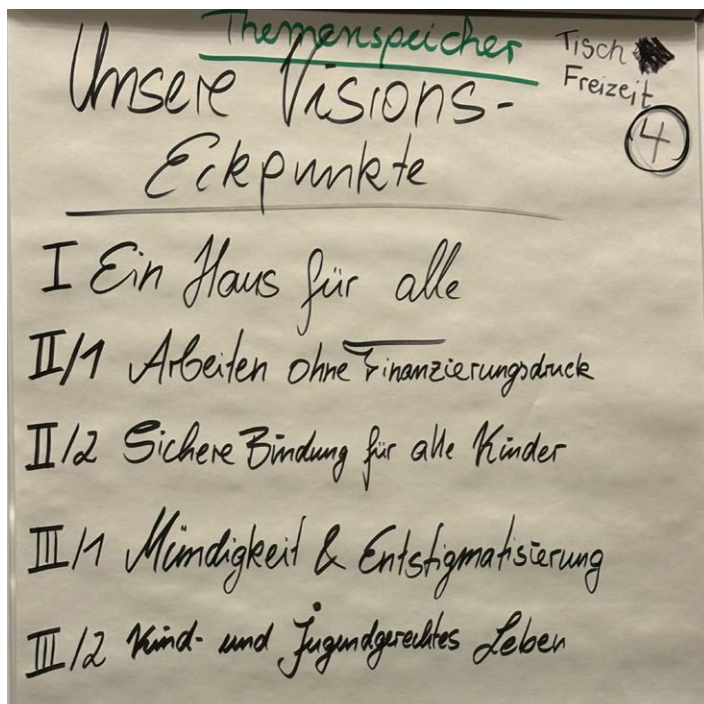 Themenspeicher
Tisch
Freizeit
4
Unsere Visions-
Eckpunkte
I Ein Haus für alle
II/1 Arbeiten ohne Finanzierungsdruck
II/2 Sichere Bindung für alle Kinder
III/1 Mündigkeit & Entstigmatisierung
III/2 Kind- und Jugendgerechtes Leben